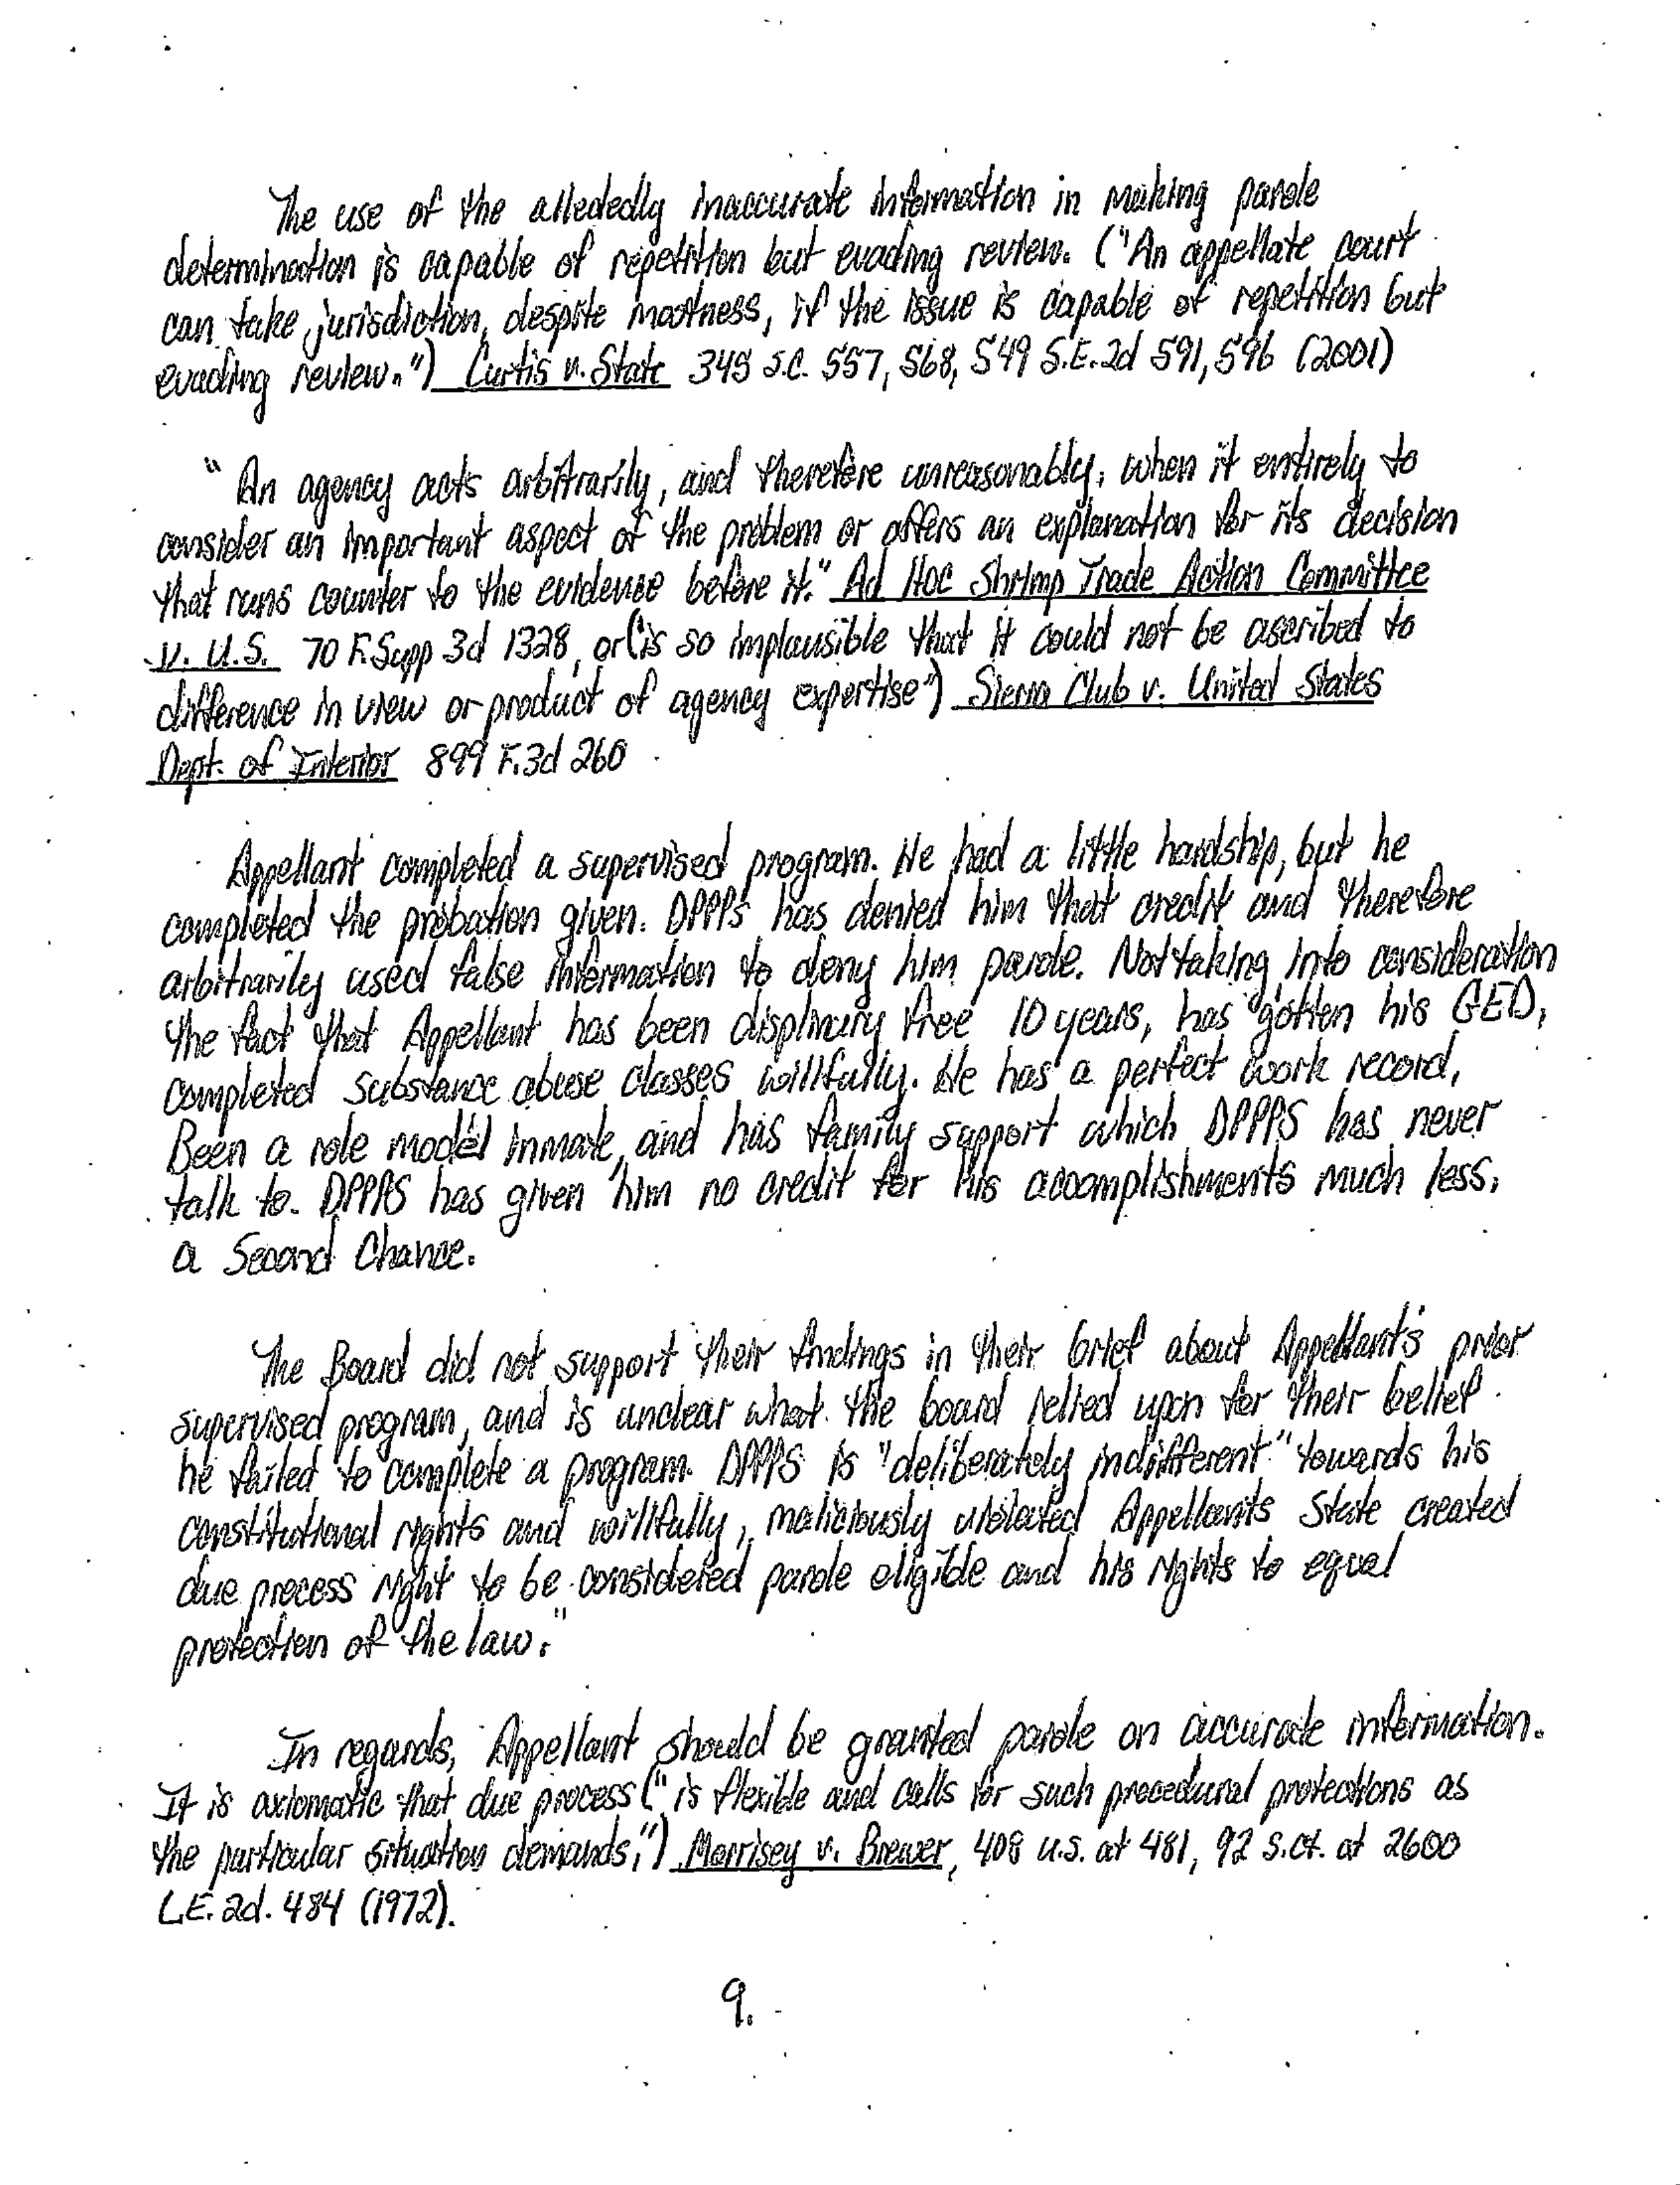 The use of the alledly inaccurate information in making parole
determination is capable of repetition but evading review. ("An appellate court
can take jurisdiction, despite mootness, if the issue is capable of repetition but
evading review.") Curtis v. State 345 S.C. 557, 568, 549 S.E.2d 591, 596 (2001)
"An agency acts arbitrarily, and therefore unreasonably, when it entirely to
consider an important aspect of the problem or offers an explanation for its decision
that runs counter to the evidence before it." Ad Hoc Shrimp Trade Action Committee
v. U.S. 70 F.Supp 3d 1328, or ("is so implausible that it could not be ascribed to
difference in view or product of agency expertise") Sierra Club v. United States
Dept. of Interior 899 F.3d 260
Appellant completed a supervised program. He had a little hardship, but he
completed the probation given. DPPPS has denied him that credit and therefore
arbitrarily used false information to deny him parole. Not taking into consideration
the fact that Appellant has been displinary free 10 years, has gotten his GED,
completed substance abuse classes willfully. He has a perfect work record,
Been a role model inmate, and has family support which DPPPS has never
talk to. DPPPS has given him no credit for his accomplishments much less,
a Second Chance.
The Board did not support their findings in their brief about Appellant's prior
supervised program, and is unclear what the board relied upon for their belief
he failed to complete a program. DPPPS is "deliberately indifferent" towards his
constitutional rights and willfully, maliciously violated Appellants State created
due process right to be considered parole eligible and his rights to equal
protection of the law."
In regards, Appellant should be granted parole on accurate information.
It is axiomatic that due process ("is flexible and calls for such procedural protections as
the particular situation demands,") Morrisey v. Brewer, 408 U.S. at 481, 92 S.Ct. at 2600
L.E. 2d. 484 (1972).
9.